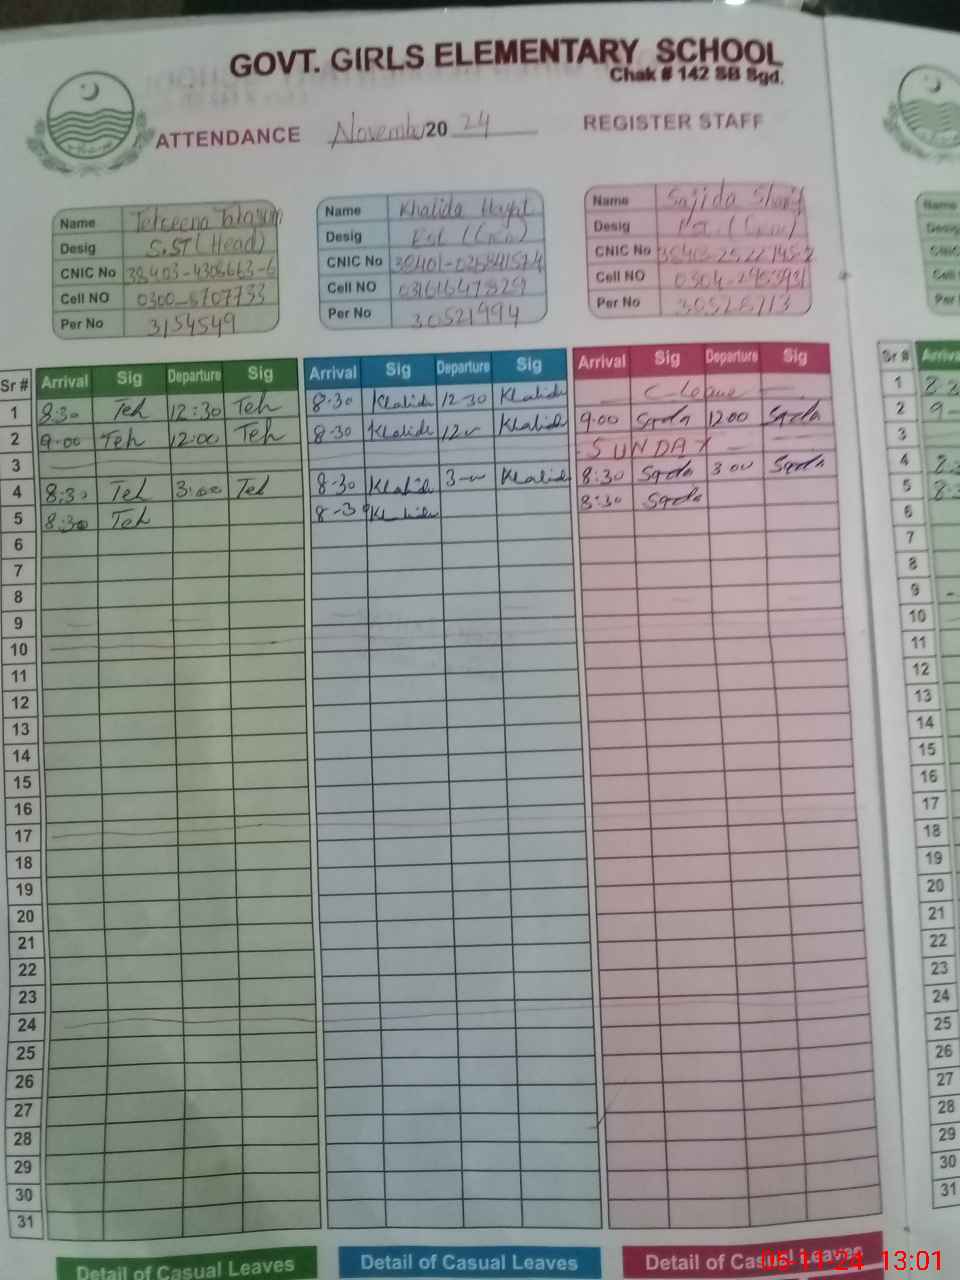 GOVT. GIRLS ELEMENTARY SCHOOL
Chak # 142 SB Sgd.
ATTENDANCE November 20 24 REGISTER STAFF
Name Khalida Hayat
Name Sajida Sharif
Desig S.ST (Head)
Desig
Desig
CNIC No 38403-4306663-6
CNIC No
CNIC No
Cell NO 0300-8707733
Cell NO 03161647829
Cell NO
Per No 3154549
Per No 30521994
Per No
Sr # Arrival Sig Departure Sig Arrival Sig Departure Sig Arrival Sig Departure Sig Sr #
1 8:30 Teh 12:30 Teh 8-30 Khalida 12 30 Khalida C-Leave 1
2 9-00 Teh 12:00 Teh 8-30 Khalida Khalida 9:00 Sajda 1200 Sajda 2
3 SUNDAY 3
4 8:30 Teh 3:00 Teh 8-30 Khalida 3-00 Khalida 8:30 Sajda 3 00 Sajda 4
5 8:30 Teh 8-30 Khalida 8:30 Sajda 5
6 6
7 7
8 8
9 9
10 10
11 11
12 12
13 13
14 14
15 15
16 16
17 17
18 18
19 19
20 20
21 21
22 22
23 23
24 24
25 25
26 26
27 27
28 28
29 29
30 30
31 31
Detail of Casual Leaves Detail of Casual Leaves Detail of Casual Leaves
05-11-24 13:01